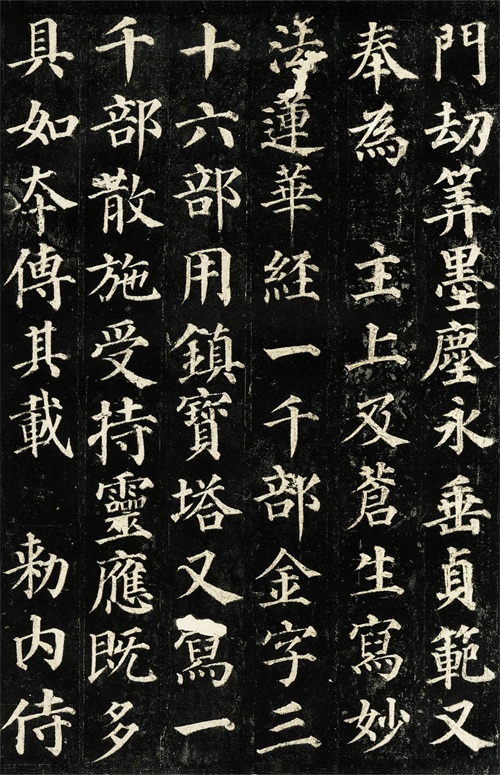 門劫筭墨塵永垂貞範又
奉為　主上及蒼生寫妙
法蓮華経一千部金字三
十六部用鎮寶塔又寫一
千部散施受持靈應既多
具如夲傳其載　勅内侍